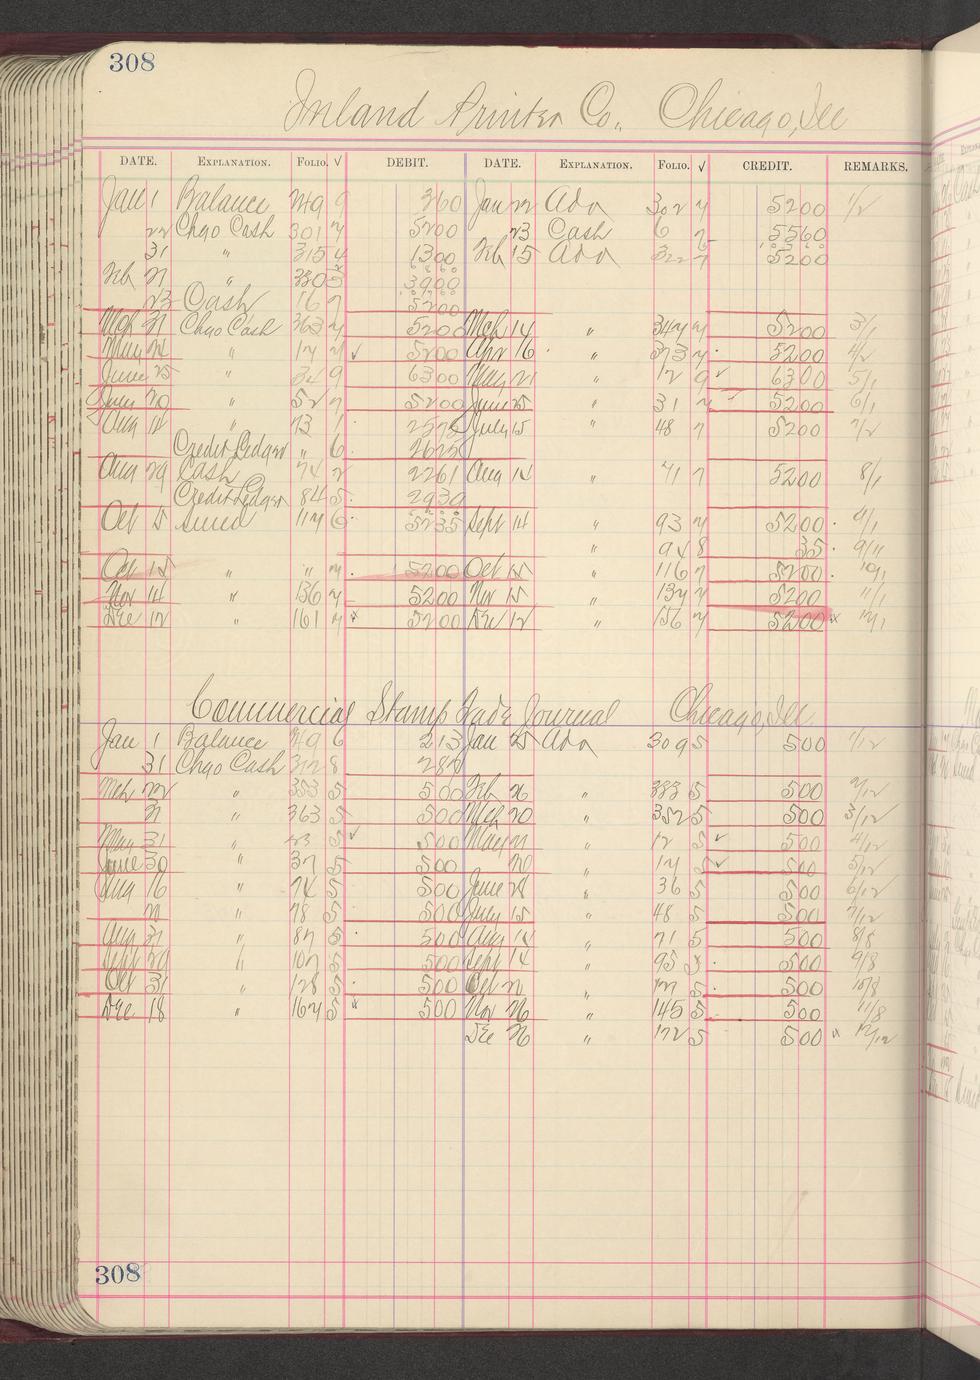 308
Inland Printer Co., Chicago, Ill
DATE. EXPLANATION. FOLIO. √ DEBIT. DATE. EXPLANATION. FOLIO. √ CREDIT. REMARKS.
Jan 1 Balance 249 9 360 Jan 22 Adv 302 7 5200 1/2
22 Chgo Cash 301 7 5200 23 Cash 6 5560
31 " 315 4 1300 Feb 15 Adv 322 7 5200
Feb 27 " 330 5 3900
23 Cash 16 7 5200
Mch 31 Chgo Cash 363 7 5200 Mch 14 " 347 7 5200 3/1
May 24 " 17 7 √ 5200 Apr 16 " 373 7 5200 4/2
June 25 " 34 9 6300 May 21 " 12 9 √ 6300 5/1
July 20 " 52 7 5200 June 25 " 31 7 5200 6/1
Aug 12 " 73 1 2575 July 15 " 48 7 5200 7/2
Credit Ledger " 6 2625
Aug 29 Cash 74 2 2261 Aug 14 " 71 7 5200 8/1
Credit Ledger 84 5 2939
Oct 5 117 6 5235 Sept 14 " 93 7 5200 9/1
" 94 8 35 9/11
Oct 15 " " 7 5200 Oct 15 " 116 7 5200 10/1
Nov 14 " 136 7 5200 Nov 15 " 137 7 5200 11/1
Dec 12 " 161 7 5200 Dec 12 " 156 7 5200 12/1
Commercial Stamp Trade Journal Chicago, Ill.
Jan 1 Balance 249 6 213 Jan 25 Adv 309 5 500 1/12
31 Chgo Cash 312 8 287
Mch 22 " 353 5 500 Feb 26 " 333 5 500 2/12
31 " 363 5 500 Mch 20 " 352 5 500 3/12
May 31 " 23 5 √ 500 May 21 " 12 5 √ 500 4/12
June 30 " 37 5 500 20 " 17 5 √ 500 5/12
Aug 16 " 74 5 500 June 28 " 36 5 500 6/12
21 " 78 5 500 July 15 " 48 5 500 7/12
Aug 31 " 87 5 500 Aug 14 " 71 5 500 8/8
Sept 29 " 107 5 500 Sept 14 " 95 5 500 9/8
Oct 31 " 128 5 500 Oct 21 " 121 5 500 10/8
Dec 18 " 167 5 500 Nov 26 " 145 5 500 11/8
Dec 26 " 172 5 500 12/12
308